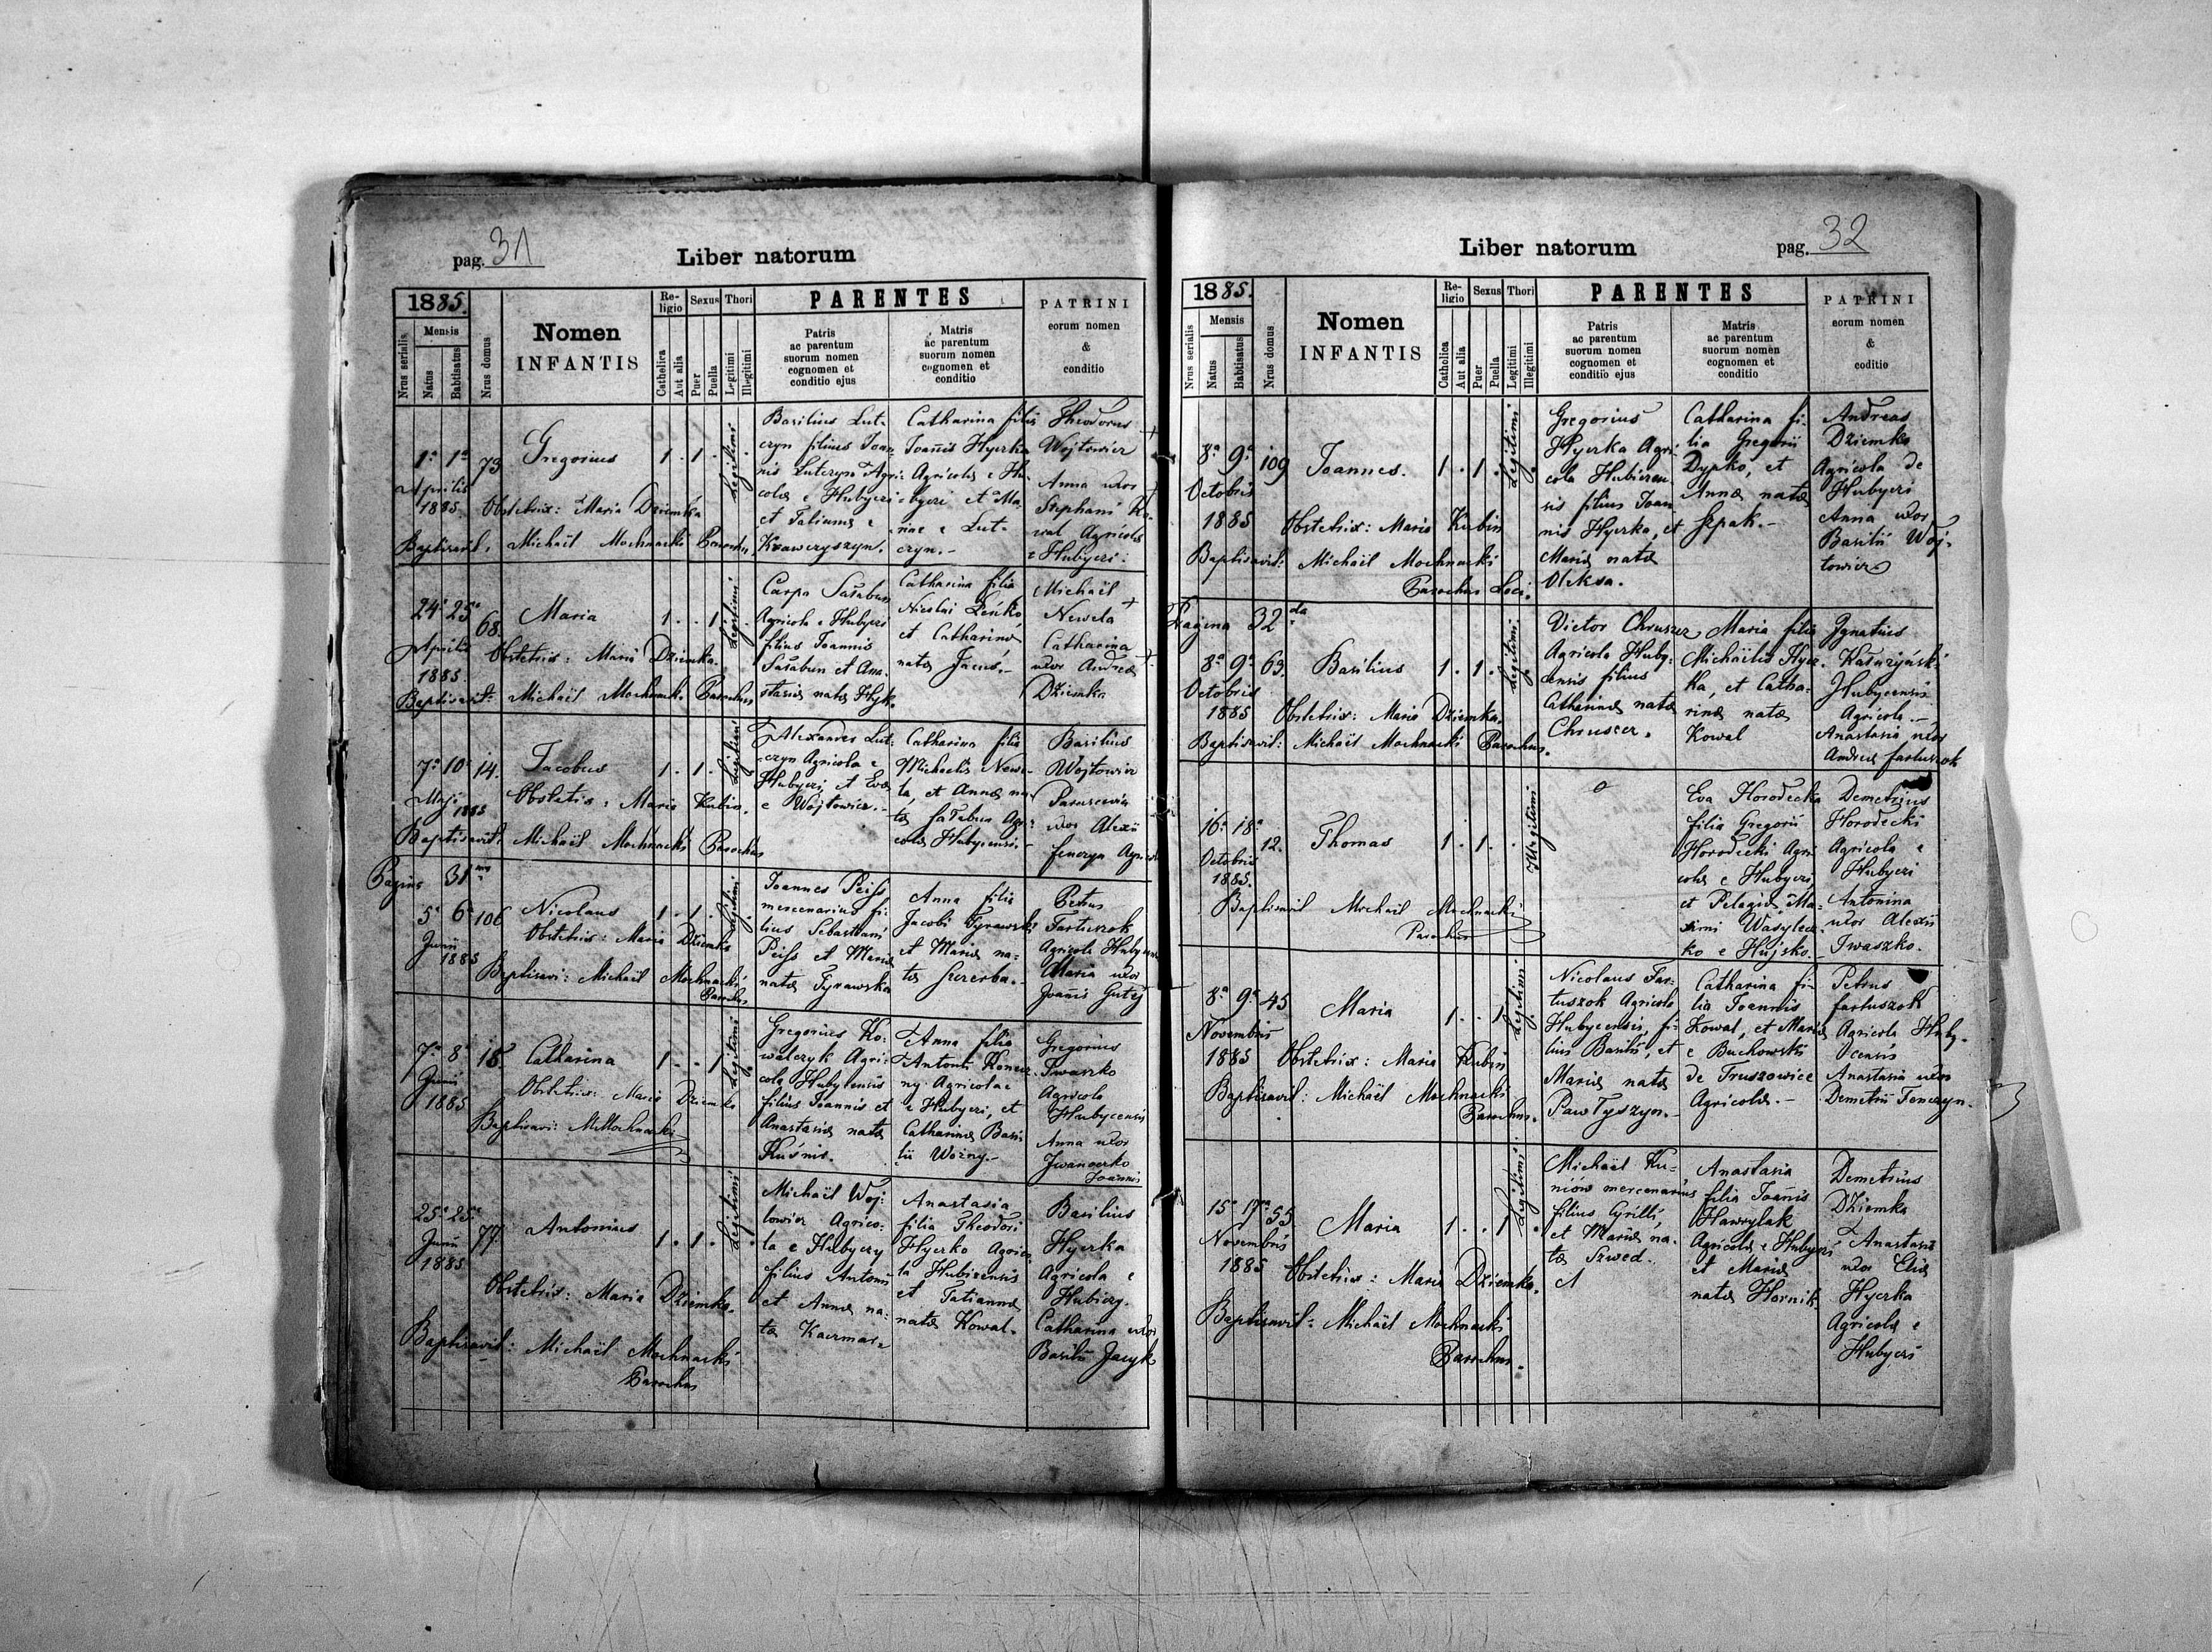 pag. 31
Liber natorum
1885.
Nrus serialis
Mensis
Natus
Babtisatus
Nrus domus
Nomen
INFANTIS
Re-
ligio
Catholica
Aut alia
Sexus
Puer
Puella
Thori
Legitimi
Illegitimi
PARENTES
Patris
ac parentum
suorum nomen
cognomen et
conditio ejus
Matris
ac parentum
suorum nomen
cognomen et
conditio
PATRINI
eorum nomen
&
conditio
1a 1a 73
Aprilis
1885.
Gregorius
1. 1.
Legitimi
Obstetrix: Maria Dziemka
Baptisavit. Michaël Mochnacki Parochus
Basilius Lut-
czyn filius Joan-
nis Lutczyn Agri-
colæ e Hubyczi
et Tatiannæ e
Krawczyszyn.
Catharina filia
Joannis Hyerka
Agricolæ e Hu-
byczi et Ma-
riae e Lut-
czyn.-
Theodorus
Wojtowicz
Anna uxor
Stephani Ko-
wal Agricolæ
e Hubyczi.
24a 25a 68.
Aprilis
1885.
Maria
1. . 1
Legitimi
Obstetrix: Maria Dziemka.
Baptisavit: Michaël Mochnacki Parochus
Agricola e Hubyczi
filius Joannis
et Ana-
stasiæ natæ Hyk.
Catharina filia
Nicolai
et Catharinæ
natæ
Michaël
Newela
Catharina
uxor Andreæ
Dziemka
7a 10a 14.
Maji 1885
Jacobus
1. 1.
Legitimi
Obstetrix: Maria Kubin.
Baptisavit: Michaël Mochnacki Parochus
Alexander Lut-
czyn Agricola e
Hubyczi, et Evæ
e Wojtowicz.-
Catharina filia
Michaelis Newe-
la, et Annæ na-
tæ Agri-
colæ Hubycensis.-
Basilius
Wojtowicz
Parascevia
uxor Alexii
Fenczyn Agricolæ
Pagina 31ma
5a 6a 106
Junii
1885
Nicolaus
1. 1.
Legitimi
Obstetrix: Maria Dziemka
Baptisavi: Michaël Mochnacki
Parochus
Joannes Peiss
mercenarius fi-
lius Sebastiani
Peiss et Mariæ
natæ Tyrawska
Anna filia
Jacobi Tyrawski
et Mariæ na-
tæ Szczerba.-
Petrus
Fartuszok
Agricola
Maria uxor
Joannis Gutej
7a 8a 18.
Junii
1885
Catharina
1. . 1
Legitimi
Obstetrix: Maria Dziemka
Baptisavi: MMochnacki
Gregorius Ko-
walczyk Agri-
cola Hubycensis
filius Joannis et
Anastasiæ natæ
Kuśnir.
Anna filia
Antonii
Agricolae
e Hubyczi, et
Catharinæ Basi-
lii Wozny.-
Gregorius
Iwaszko
Agricola
Hubycensis
Anna uxor
Joannis
25a 25a 77.
Junii
1885
Antonius
1. 1.
Legitimi
Obstetrix: Maria Dziemka.
Baptisavit: Michaël Mochnacki
Parochus
Michaël Woj-
towicz Agrico-
la e Hubyczy
filius Antonii
et Annæ na-
tæ Kaczmar.
Anastasia
filia Theodori
Hyerko Agrico-
la Hubicensis
et Tatiannæ
natæ Kowal.
Basilius
Hyerka
Agricola e
Hubiczy.
Catharina uxor
Basilii Jacyk
Liber natorum
pag. 32
1885.
Nrus serialis
Mensis
Natus
Babtisatus
Nrus domus
Nomen
INFANTIS
Re-
ligio
Catholica
Aut alia
Sexus
Puer
Puella
Thori
Legitimi
Illegitimi
PARENTES
Patris
ac parentum
suorum nomen
cognomen et
conditio ejus
Matris
ac parentum
suorum nomen
cognomen et
conditio
PATRINI
eorum nomen
&
coditio
8a 9a 109
Octobris
1885
Joannes.
1. 1.
Legitimi
Obstetrix: Maria Kubin
Baptisavit: Michaël Mochnacki
Parochus Loci.
Gregorius
Hyerka Agri-
cola Hubicen-
sis filius Joan-
nis Hyerka, et
Mariæ natæ
Oleksa.
Catharina fi-
lia Gregorii
Dypko, et
Annæ natæ
Szpak.-
Andreas
Dziemka
Agricola de
Hubyczi
Anna uxor
Basilii Woj-
towicz
Pagina 32da
8a 9a 63
Octobris
1885
Basilius
1. 1.
Legitimi
Obstetrix: Maria Dziemka.
Baptisavit: Michaël Mochnacki Parochus.
Victor Chruszcz
Agricola Huby-
censis filius
Catharinæ natæ
Chruszcz.
Maria filia
Michaëlis Hyer-
ka, et Catha-
rinæ natæ
Kowal
Ignatius
Hubycensis
Agricola.-
Anastasia uxor
Andreæ Fartuszok
16a 18a 12.
Octobris
1885.
Thomas
1. 1.
Illegitimi
Baptisavit Michaël Mochnacki
Parochus
Eva Horodecka
filia Gregorii
Horodecki Agri-
colæ e Hubyczi,
et Pelagiæ, Ma-
ximi Wasylecz-
ko e Hujsko.
Demetrius
Horodecki
Agricola e
Hubyczi
Antonina
uxor Alexii
Iwaszko.
8a 9a 45
Novembris
1885
Maria
1. . 1
Legitimi
Obstetrix: Maria Kubin
Baptisavit: Michaël Mochnacki
Parochus.
Nicolaus Far-
tuszok Agricola
Hubycensis, fi-
lius Basilii, et
Mariæ natæ
Pawłyszyn.
Catharina fi-
lia Joannis
Kowal, et Mariæ
e Buchowski
de Truszowice
Agricolæ.-
Petrus
Fartuszok
Agricola Huby-
censis
Anastasia uxor
Demetrii Fenczyn.
15a 17a 55
Novembris
1885
Maria
1. . 1
Legitimi
Obstetrix: Maria Dziemka.
Baptisavit: Michaël Mochnacki
Parochus.
Michaël Ku-
niów mercenarius
filius
et Mariæ na-
tæ Szwed.
Anastasia
filia Joannis
Hawrylak
Agricolæ e Hubyczi
et Mariæ
natæ Hornik
Demetrius
Dziemka
Anastasia
uxor Eliæ
Hyerka
Agricolæ e
Hubyczi